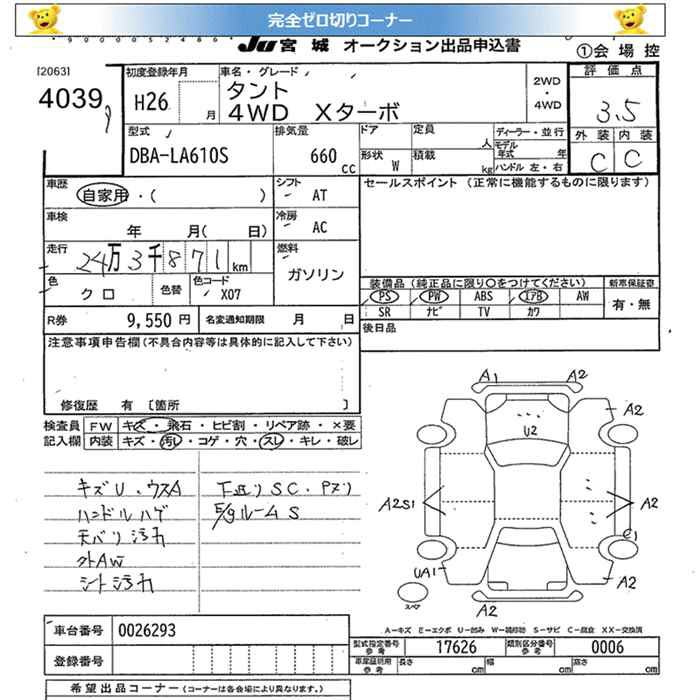 完全ゼロ切りコーナー
JU 宮城 オークション出品申込書
①会場控
[2063]
4039
初度登録年月
H26 月
車名・グレード
タント
4WD Xターボ
2WD
・
4WD
評価点
3.5
外装 内装
C C
型式
DBA-LA610S
排気量
660 cc
ドア 定員 人
形状 W 積載 kg
ディーラー・並行
モデル年式 年
ハンドル 左・右
車歴
自家用・( )
シフト
AT
セールスポイント (正常に機能するものに限ります)
車検
年 月( 日)
冷房
AC
走行
24万3千871km
燃料
ガソリン
色
クロ
色替
色コード
X07
装備品(純正品に限り○をつけてください)
新車保証書
PS PW ABS エアB AW
SR ナビ TV カワ
有・無
R券 9,550円
名変通知期限 月 日
後日品
注意事項申告欄(不具合内容等は具体的に記入して下さい)
修復歴 有 〔箇所 〕
検査員記入欄
FW キズ・飛石・ヒビ割・リペア跡・×要
内装 キズ・汚レ・コゲ・穴・スレ・キレ・破レ
キズU・ウスA
ハンドルハゲ
天バリ汚れ
外AW
シート汚れ
下廻りSC・Pズリ
E/gルームS
A1 A2
A2
U2
A2S1
A2
C1
UA1
A2
A2
スペア
A-キズ E-エクボ U-凹み W-補修跡 S-サビ C-腐食 XX-交換済
車台番号 0026293
登録番号
型式指定番号 参考 17626
類別区分番号 参考 0006
車庫証明用 参考 長さ cm 幅 cm 高さ cm
希望出品コーナー (コーナーは各会場により異なります。)